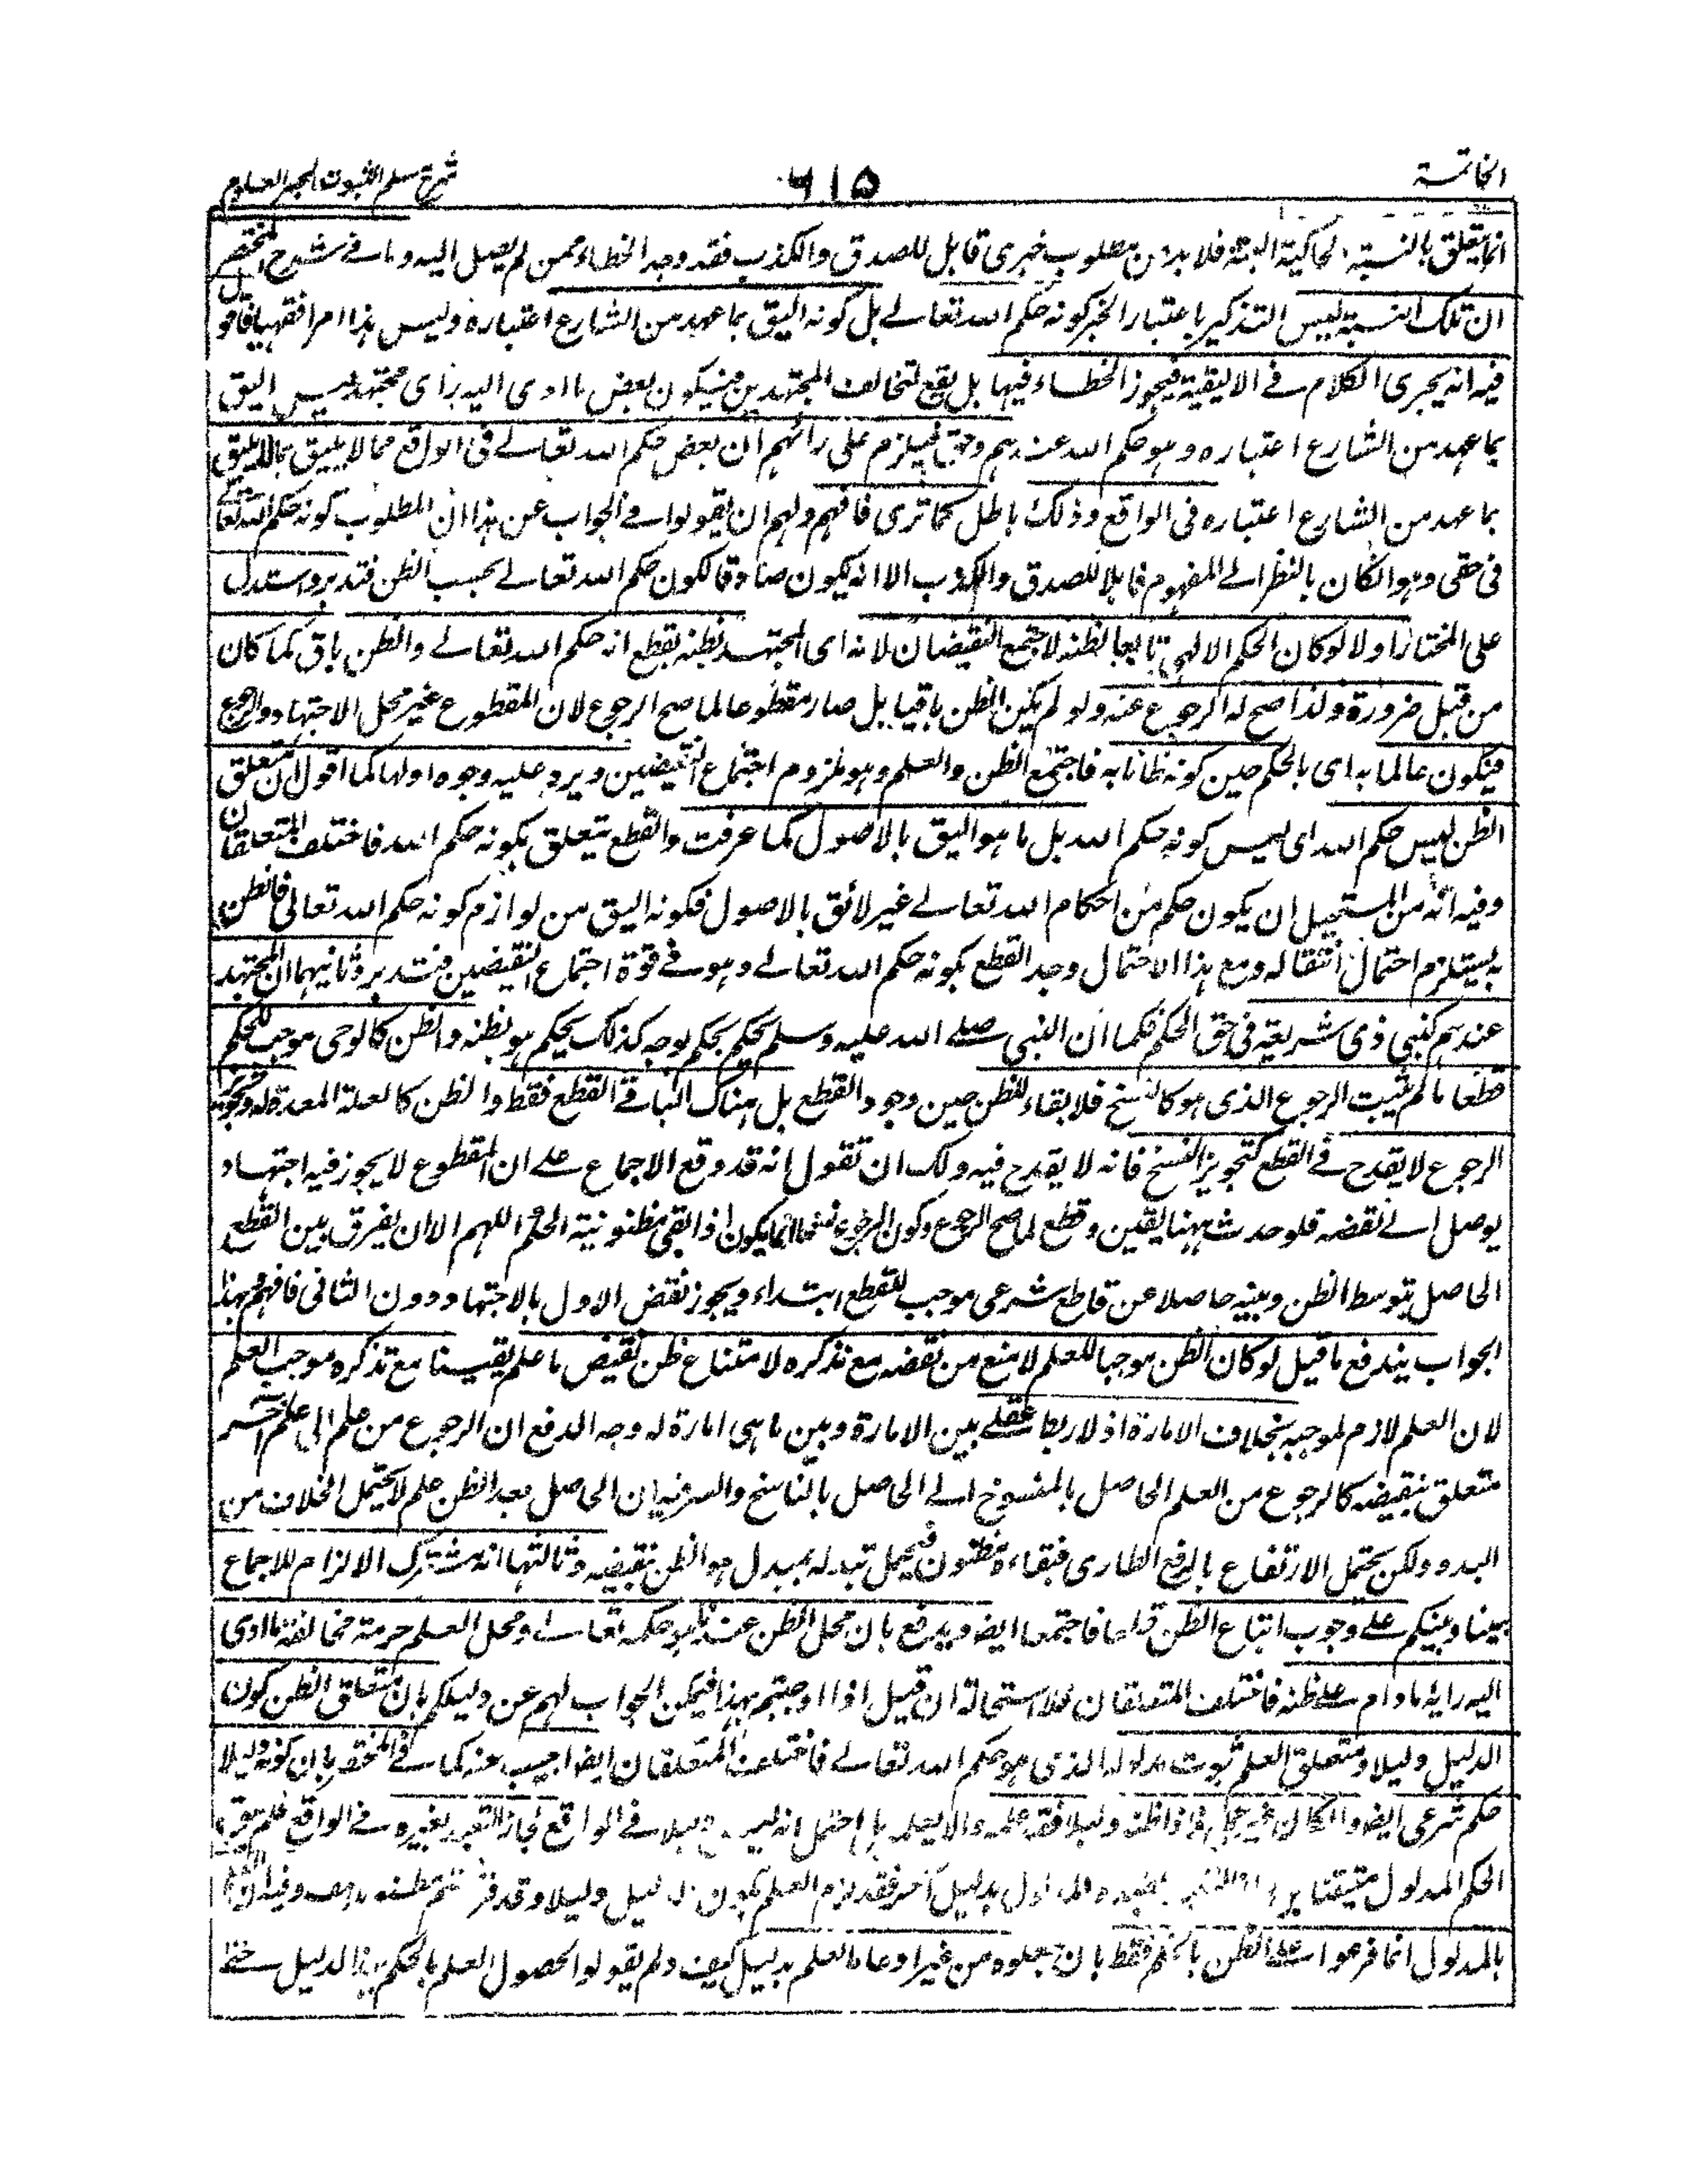 الخاتمة
٦١٥
شرح مسلم الثبوت لبحر العلوم
انما يتعلق بالنسبة الحاكية البتة فلا بد من مطلوب خبرى قابل للصدق والكذب فقد وجد الخطاء ممن لم يصل اليه وما فى شروح المختصر
ان تلك النسبة ليس التذكير باعتبار الخبر كونه حكم الله تعالى بل كونه اليق بما عهد من الشارع اعتباره وليس هذا امرا فقهيا
فيه انه يجرى الكلام فى الاليقية فيجوز الخطاء فيها بل يقع لتخالف المجتهدين فيكون بعض ما ادى اليه رأى مجتهد ليس اليق
بما عهد من الشارع اعتباره وهو حكم الله عندهم وح فيلزم على رائهم ان بعض حكم الله تعالى فى الواقع مما لا يليق
بما عهد من الشارع اعتباره فى الواقع وذلك باطل كما ترى فافهم ولهم ان يقولوا فى الجواب عن هذا ان المطلوب كونه حكم الله تعالى
فى حقى وهو وان كان بالنظر الى المفهوم قابلا للصدق والكذب الا انه يكون صادقا لكون حكم الله تعالى بحسب الظن فتدبر واستدل
على المختار اولا لو كان الحكم الالهى تابعا لظنه لاجتمع النقيضان لانه اى المجتهد بظنه يقطع انه حكم الله تعالى والظن باق كما كان
من قبل ضرورة ولذا صح له الرجوع عنه ولو لم يكن الظن باقيا بل صار مقطوعا لما صح الرجوع لان المقطوع غير محل الاجتهاد والرجوع
فيكون عالما به اى بالحكم حين كونه ظانا به فاجتمع الظن والعلم وهو ملزوم اجتماع النقيضين ويرد عليه وجوه اولها كما اقول ان متعلق
الظن ليس حكم الله اى ليس كونه حكم الله بل ما هو اليق بالاصول كما عرفت والقطع يتعلق بكونه حكم الله فاختلف المتعلقان
وفيه انه من المستحيل ان يكون حكم من احكام الله تعالى غير لائق بالاصول فكونه اليق من لوازم كونه حكم الله تعالى فالظن
به يستلزم احتمال انتقاله ومع هذا الاحتمال وجد القطع بكونه حكم الله تعالى وهو فى قوة اجتماع النقيضين فتدبر وثانيهما ان المجتهد
عندهم كنبى ذى شريعة فى حق الحكم فكما ان النبى صلى الله عليه وسلم يحكم بحكم بوحيه كذلك يحكم هو بظنه والظن كالوحى موجب للحكم
قطعا ما لم يثبت الرجوع الذى هو كالنسخ فلا بقاء للظن حين وجود القطع بل هناك الباقى القطع فقط والظن كالعلة المعدة له وتجويز
الرجوع لا يقدح فى القطع كتجويز النسخ فانه لا يقدح فيه ولك ان تقول انه قد وقع الاجماع على ان المقطوع لا يجوز فيه اجتهاد
يوصل الى نقضه فلو حدث ههنا يقين وقطع لما صح الرجوع وكون الرجوع نسخا انما يكون اذا بقى مظنونية الحكم اللهم الا ان يفرق بين القطع
الحاصل بتوسط الظن وبينه حاصلا عن قاطع شرعى موجب للقطع ابتداء ويجوز نقض الاول بالاجتهاد دون الثانى فافهم وبهذا
الجواب يندفع ما قيل لو كان الظن موجبا للعلم لامتنع من نقضه مع تذكره لامتناع ظن نقيض ما علم يقينا مع تذكره موجب العلم
لان العلم لازم لموجبه بخلاف الامارة اذ لا ربط عقلى بين الامارة وبين ما هى امارة له وجه الدفع ان الرجوع من علم الى علم آخر
متعلق بنقيضه كالرجوع من العلم الحاصل بالمنسوخ الى الحاصل بالناسخ والسر فيه ان الحاصل بعد الظن علم لا يحتمل الخلاف من
البدو ولكن يحتمل الارتفاع بالرفع الطارى فبقاءه مظنون فيحمل تبدله بمبدل هو الظن بنقيضه وثالثها انه مشترك الالزام للاجماع
بيننا وبينكم على وجوب اتباع الظن قطعا فاجتمعا ايضا ويدفع بان محل الظن عندنا هو حكمه تعالى ومحل العلم حرمة مخالفة ما ادى
اليه رايه ما دام على ظنه فاختلف المتعلقان فلا استحالة ان قيل اذا اوجبتم بهذا فيمكن الجواب لهم عن دليلكم بان متعلق الظن كون
الدليل دليلا ومتعلق العلم ثبوت مدلوله الذى هو حكم الله تعالى فاختلف المتعلقان ايضا اجيب عنه كما فى المختصر بان كونه دليلا
حكم شرعى ايضا فاذا ظنه دليلا فقد علمه والا احتمل انه ليس دليلا فى الواقع لجاز التعبد بغيره فى الواقع فلم يبق
الحكم المدلول متيقنا المدلول بدليل آخر فقد لزم العلم بكون الدليل دليلا وقد
بالمدلول انما فرعوا على الظن بالحكم فقط بان جعلوه من غير ادعاء العلم بدليل كيف ولم يقولوا بحصول العلم بالحكم الدليل